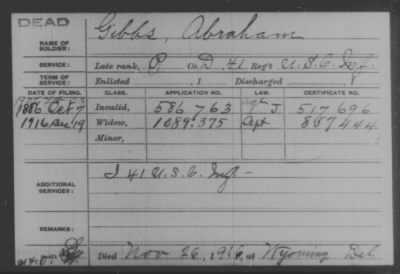 DEAD
Gibbs, Abraham
NAME OF SOLDIER:
SERVICE: Late rank, P Co. D, 41 Reg't U.S.C. Inf.
TERM OF SERVICE: Enlisted , 1 Discharged , 1
DATE OF FILING. CLASS. APPLICATION NO. LAW. CERTIFICATE NO.
1886 Oct 7 Invalid, 586 763 J 517 696
1916 Dec 19 Widow, 1089.375 Sept 857444
Minor,
I 41 U.S.C. Inf -
ADDITIONAL SERVICES:
REMARKS:
Died Nov 26, 1916, at Wyoming Del